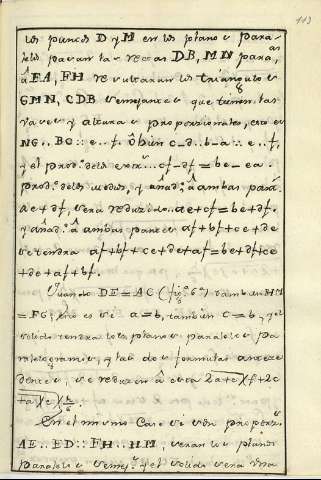 113
los puntos D y M en los planos para-
lelos pasan las rectas DB, MN paral.as
á EA, FH resultaran los triangulos
GMN, CDB semejantes que tienen las
vases y altura proporzionales, esto es
NG..BC::e..f. ó bien c-d..b-a::e..f,
y el prod.o de los extr.s cf-df=be-ea.
prod.o de los medios, y añad.o á ambas par.s
ae+df, sera reduzido..ae+cf=be+df.
y añad.o á ambas partes af+bf+ce+de
se tendra af+bf+ce+de+af=be+df+ce
+de+af+bf.
Quando DE=AC (fig.a 6.a) tambien HM
=FG, esto es si a=b, tambien c=b, y el
solido tendra los planos paralelos pa-
ralelogramos, y las dos formulas antece-
dentes, se reduzen á esta 2a+c)(f+2c
+a)(e)(h/6.
En el mismo Caso si son propor.s
AE..ED::FH..HM, seran los planos
paralelos semej.s y el solido sera una